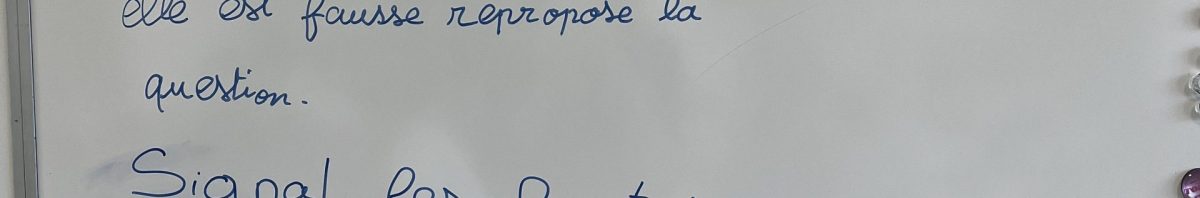 elle est fausse repropose la
question.
Signal les